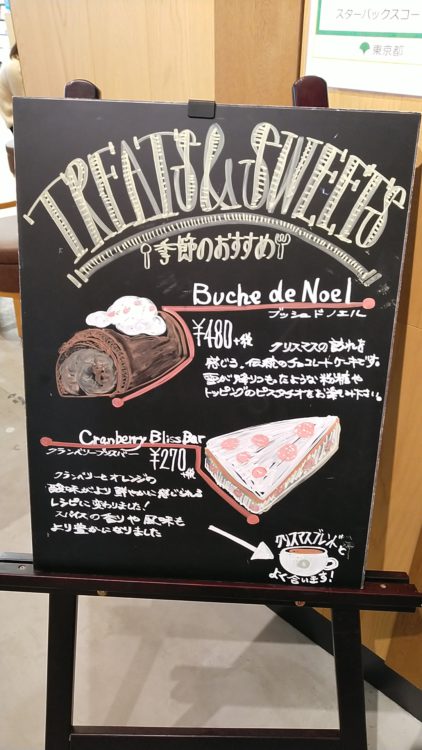 スターバックスコー
東京都
TREATS & SWEETS
季節のおすすめ
Buche de Noel
ブッシュ ド ノエル
¥480+税
クリスマスの訪れを
感じる、伝統のチョコレートケーキです。
雪が降りつもったような粉糖や
トッピングのピスタチオをお楽しみ下さい。
Cranberry Bliss Bar
クランベリーブリスバー
¥270
+税
クランベリーとオレンジの
酸味がより鮮やかに感じられる
レシピに変わりました!
スパイスの香りや風味も
より豊かになりました
クリスマスブレンドと
よく合います!